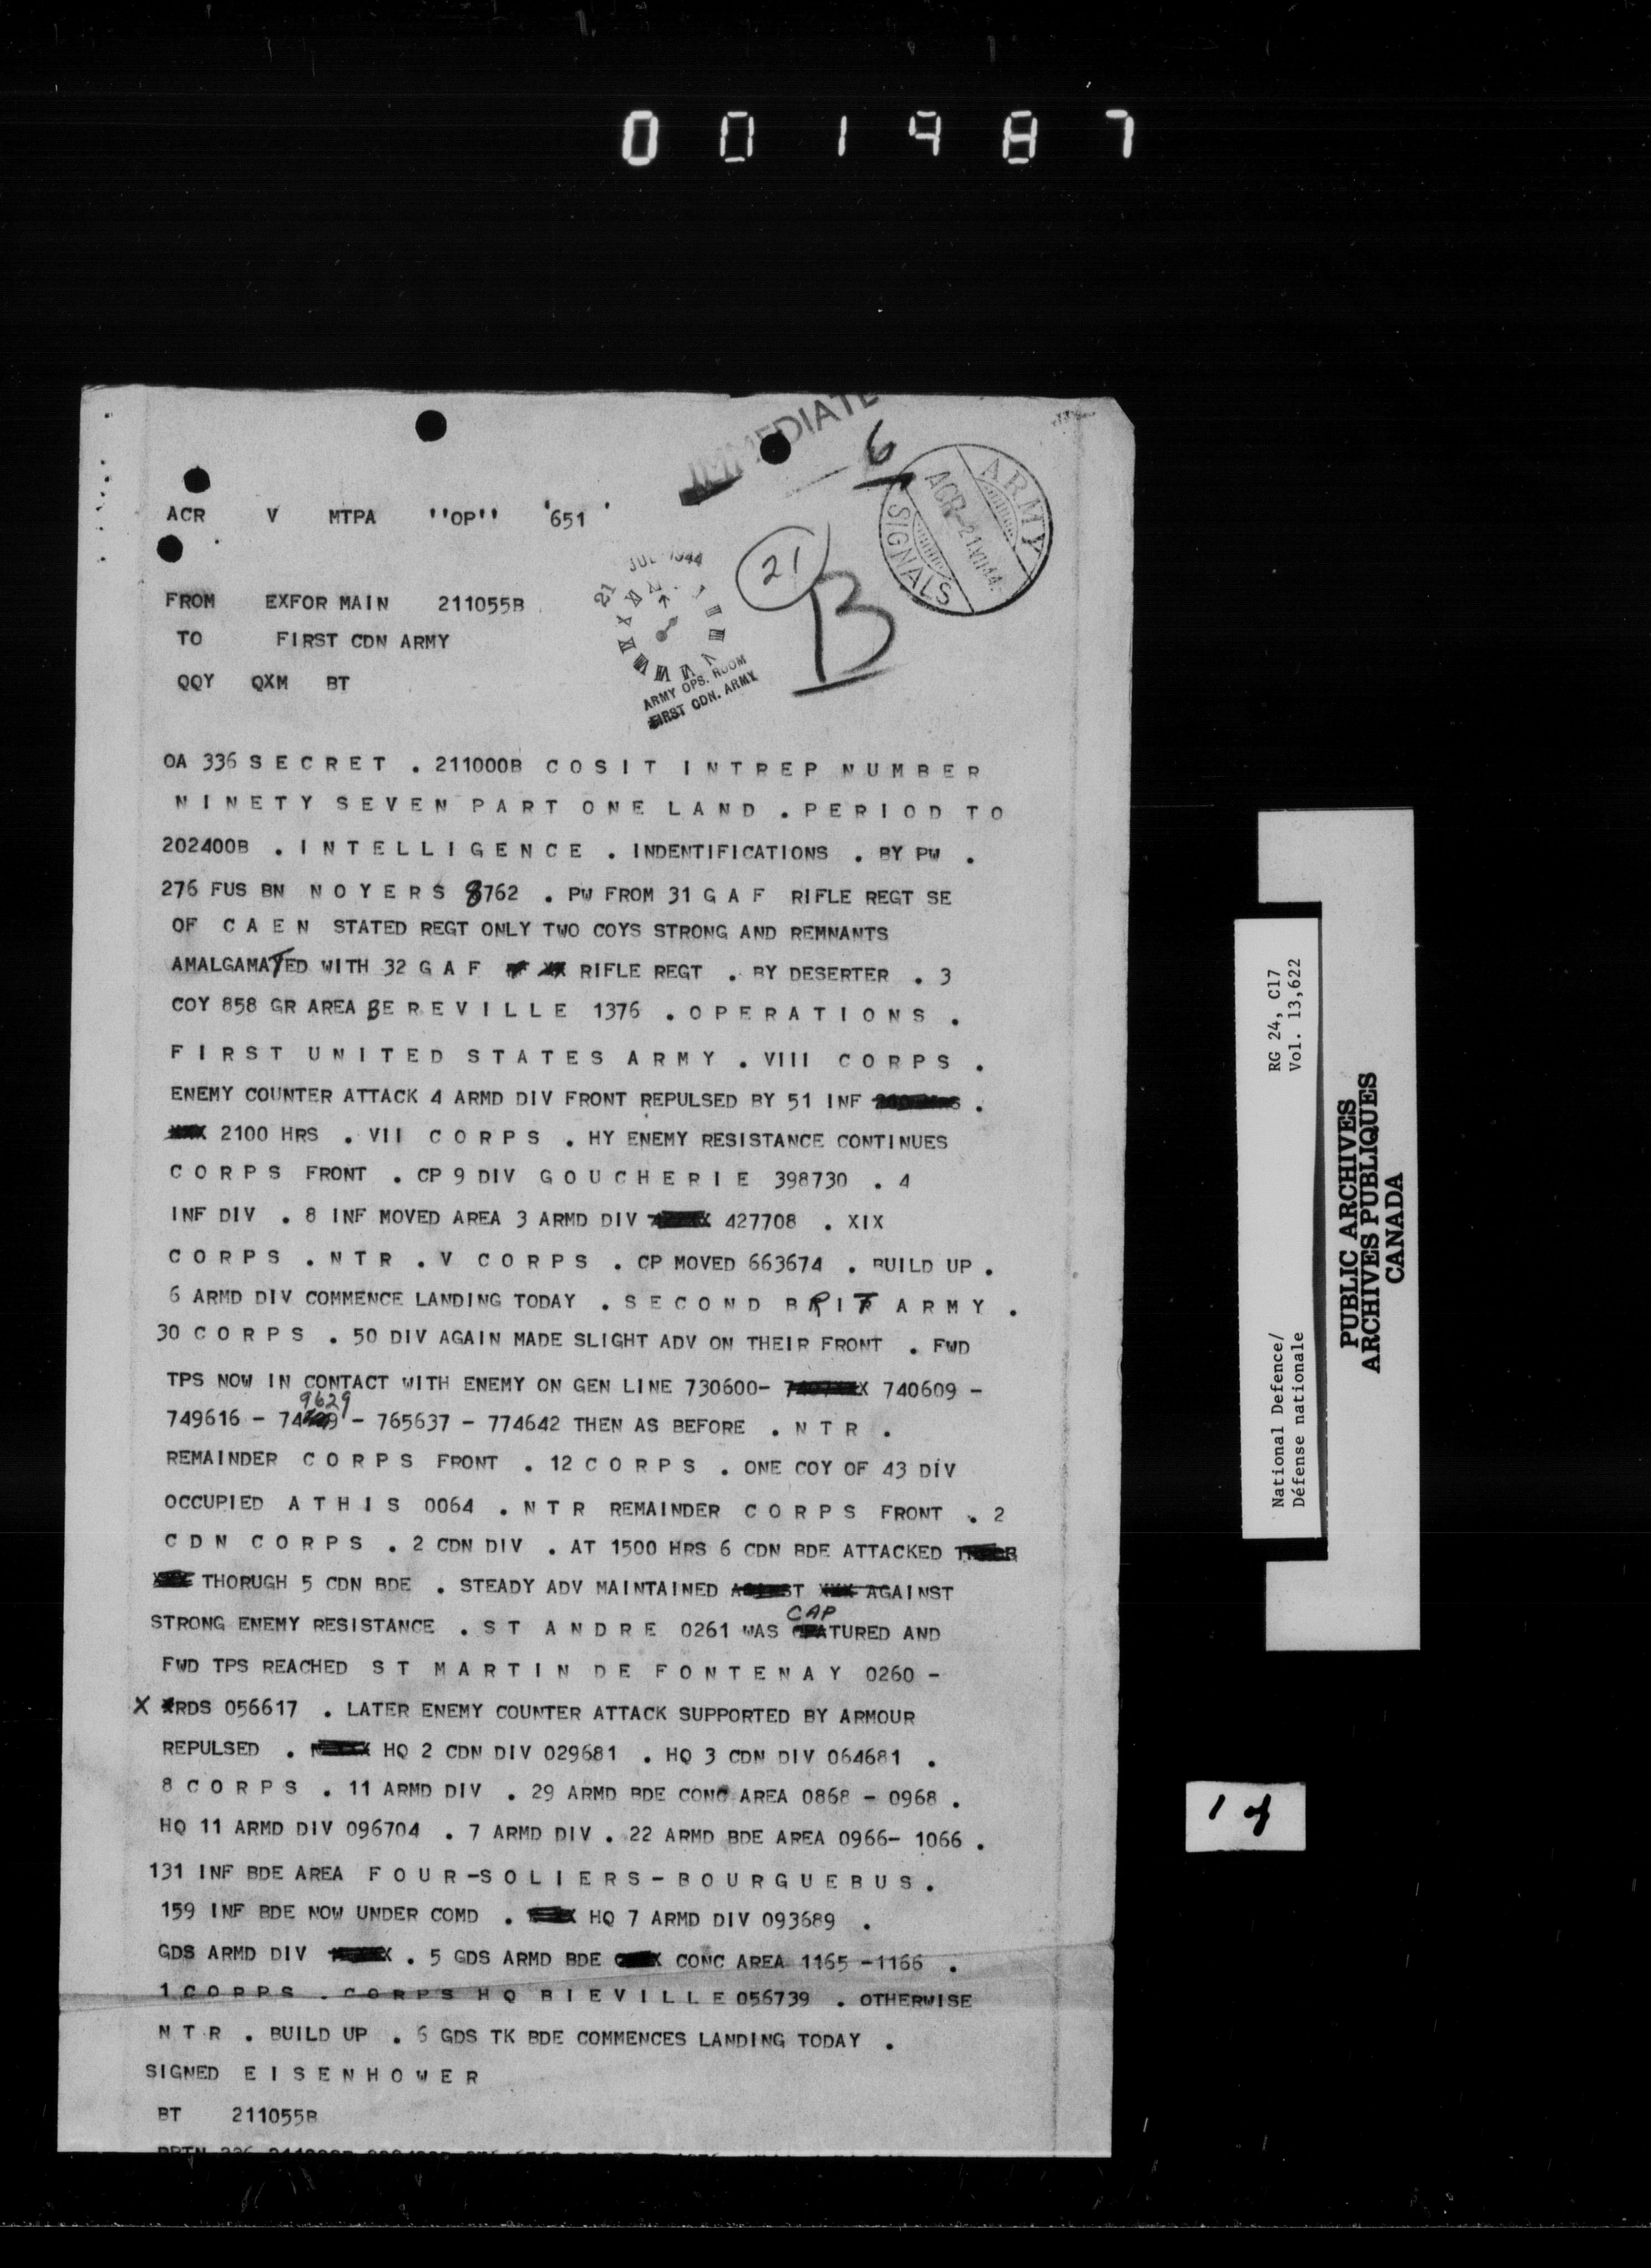 001487
IMMEDIATE
6
ARMY
ACR-21 VII 44
SIGNALS
ACR V MTPA ''OP'' '651'
21 JUL 1944
21
B
FROM EXFOR MAIN 211055B
TO FIRST CDN ARMY
QQY QXM BT
ARMY OPS. ROOM
FIRST CDN. ARMY
OA 336 S E C R E T . 211000B C O S I T I N T R E P N U M B E R
N I N E T Y S E V E N P A R T O N E L A N D . P E R I O D T O
202400B . I N T E L L I G E N C E . INDENTIFICATIONS . BY PW .
276 FUS BN N O Y E R S 8762 . PW FROM 31 G A F RIFLE REGT SE
OF C A E N STATED REGT ONLY TWO COYS STRONG AND REMNANTS
AMALGAMATED WITH 32 G A F RIFLE REGT . BY DESERTER . 3
COY 858 GR AREA B E R E V I L L E 1376 . O P E R A T I O N S .
F I R S T U N I T E D S T A T E S A R M Y . VIII C O R P S .
ENEMY COUNTER ATTACK 4 ARMD DIV FRONT REPULSED BY 51 INF .
2100 HRS . VII C O R P S . HY ENEMY RESISTANCE CONTINUES
C O R P S FRONT . CP 9 DIV G O U C H E R I E 398730 . 4
INF DIV . 8 INF MOVED AREA 3 ARMD DIV 427708 . XIX
C O R P S . N T R . V C O R P S . CP MOVED 663674 . BUILD UP .
6 ARMD DIV COMMENCE LANDING TODAY . S E C O N D B R I T A R M Y .
30 C O R P S . 50 DIV AGAIN MADE SLIGHT ADV ON THEIR FRONT . FWD
TPS NOW IN CONTACT WITH ENEMY ON GEN LINE 730600- 740609 -
749616 - 749629 - 765637 - 774642 THEN AS BEFORE . N T R .
REMAINDER C O R P S FRONT . 12 C O R P S . ONE COY OF 43 DIV
OCCUPIED A T H I S 0064 . N T R REMAINDER C O R P S FRONT . 2
C D N C O R P S . 2 CDN DIV . AT 1500 HRS 6 CDN BDE ATTACKED
THORUGH 5 CDN BDE . STEADY ADV MAINTAINED AGAINST
STRONG ENEMY RESISTANCE . S T A N D R E 0261 WAS CAPTURED AND
FWD TPS REACHED S T M A R T I N D E F O N T E N A Y 0260 -
X XRDS 056617 . LATER ENEMY COUNTER ATTACK SUPPORTED BY ARMOUR
REPULSED . HQ 2 CDN DIV 029681 . HQ 3 CDN DIV 064681 .
8 C O R P S . 11 ARMD DIV . 29 ARMD BDE CONC AREA 0868 - 0968 .
HQ 11 ARMD DIV 096704 . 7 ARMD DIV . 22 ARMD BDE AREA 0966- 1066 .
131 INF BDE AREA F O U R -S O L I E R S - B O U R G U E B U S .
159 INF BDE NOW UNDER COMD . HQ 7 ARMD DIV 093689 .
GDS ARMD DIV . 5 GDS ARMD BDE CONC AREA 1165 -1166 .
1 C O R P S . C O R P S H Q B I E V I L L E 056739 . OTHERWISE
N T R . BUILD UP . 6 GDS TK BDE COMMENCES LANDING TODAY .
SIGNED E I S E N H O W E R
BT 211055B
National Defence/ RG 24, C17
Défense nationale Vol. 13,622
PUBLIC ARCHIVES
ARCHIVES PUBLIQUES
CANADA
1 of